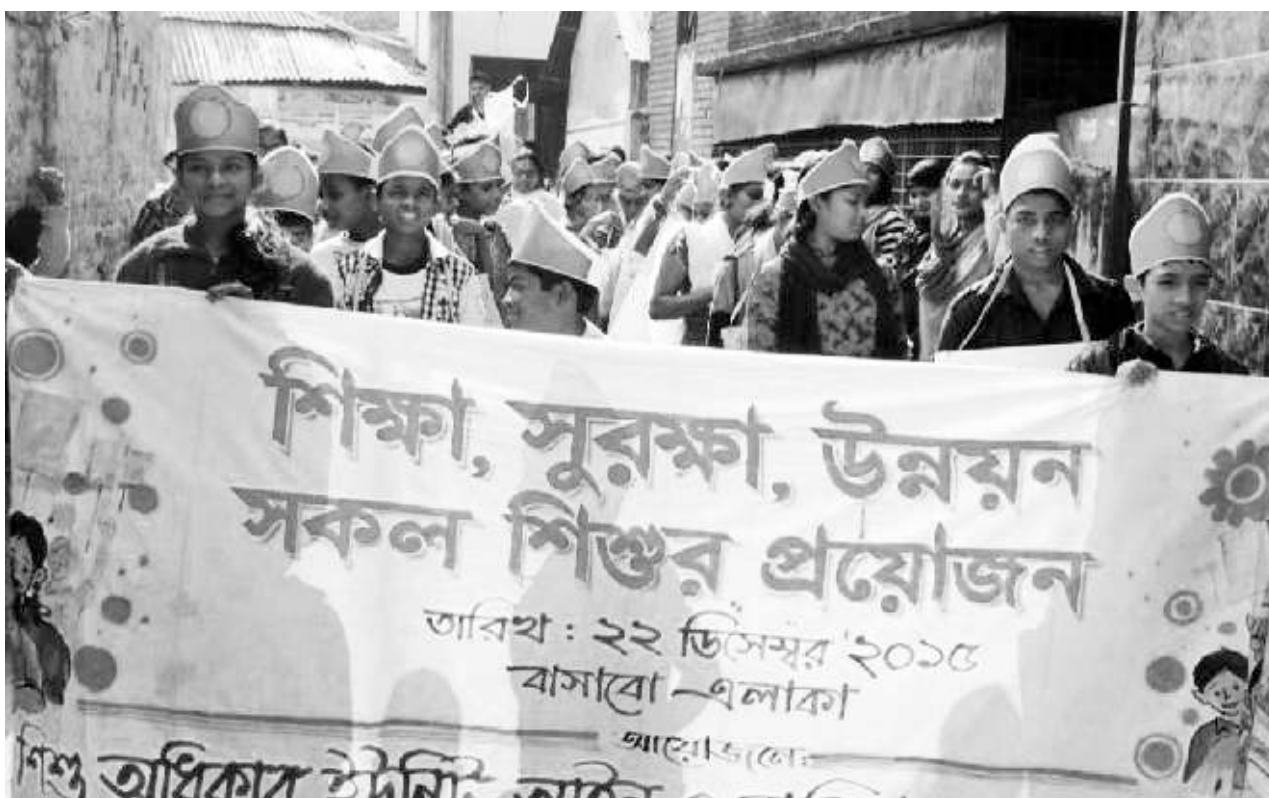 শিক্ষা, সুরক্ষা, উন্নয়ন
সকল শিশুর প্রয়োজন
তারিখ : ২২ ডিসেম্বর '২০১৫
বাসাবো এলাকা
আয়োজনে:
শিশু অধিকার ইউনিট, আইন ও